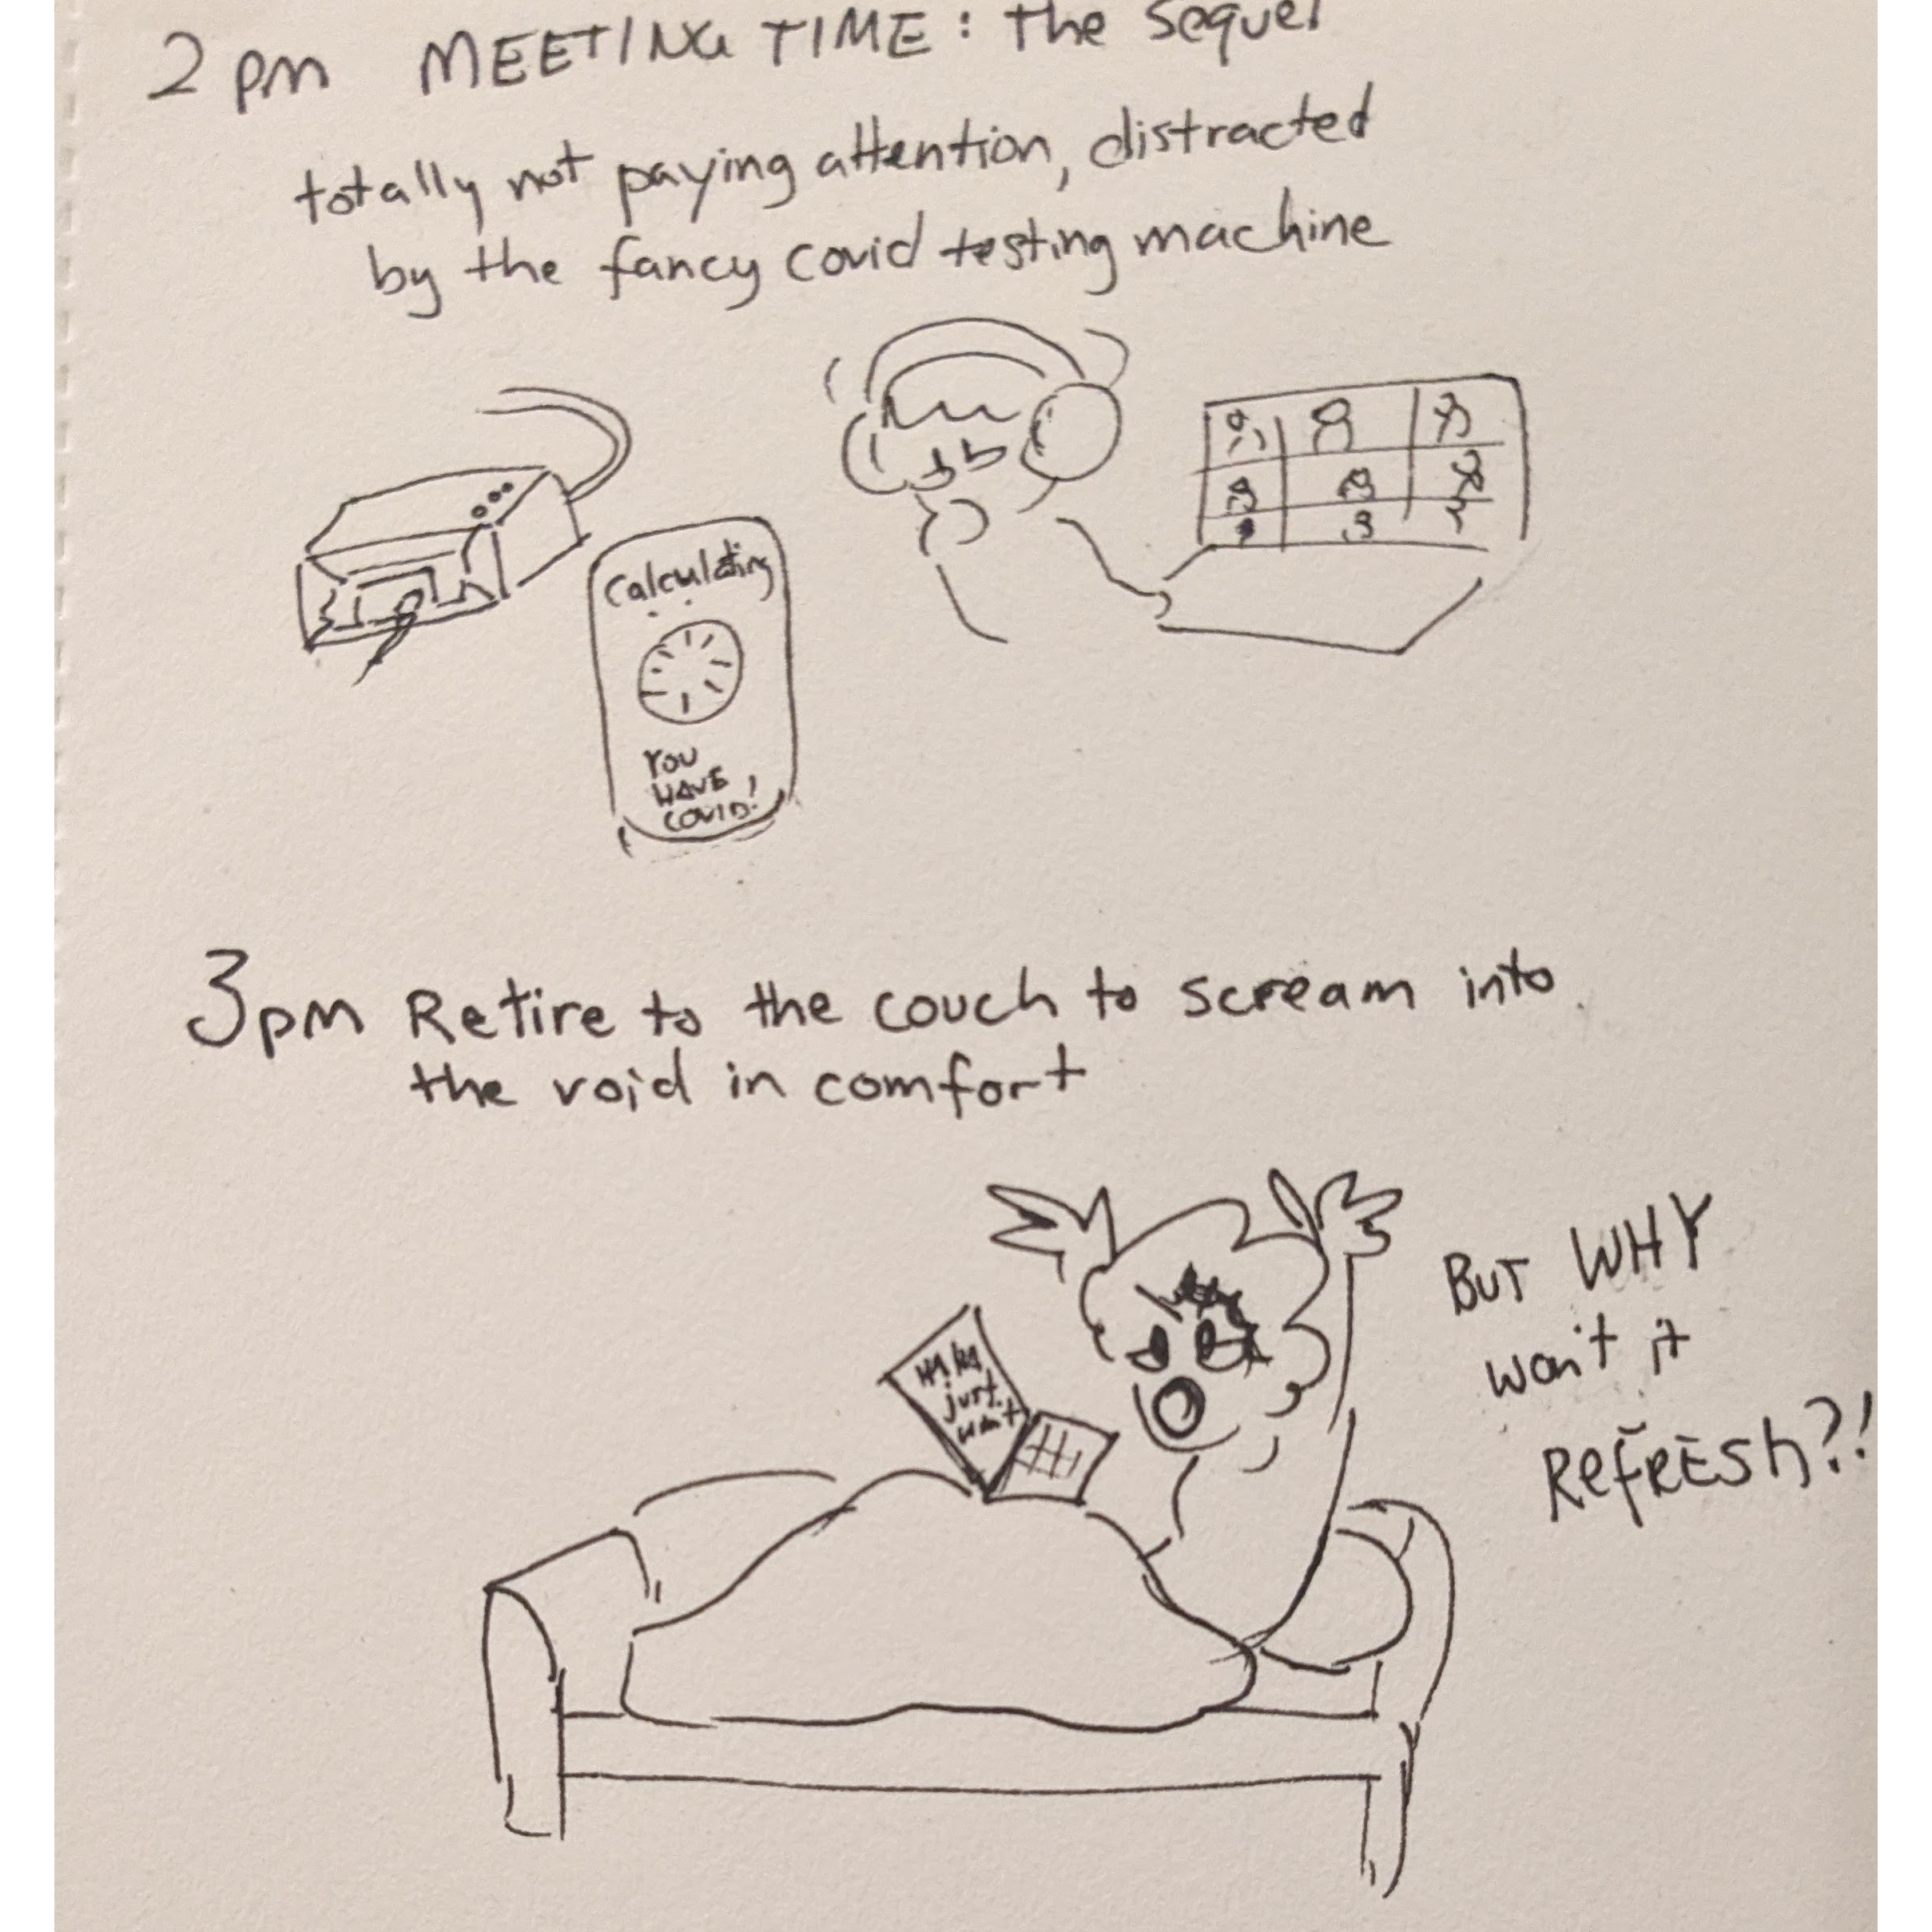 2 pm MEETING TIME: the sequel
totally not paying attention, distracted
by the fancy covid testing machine
Calculating
YOU
HAVE
COVID!
3pm Retire to the couch to scream into
the void in comfort
HA HA
just
wait
BUT WHY
won't it
REFRESH?!